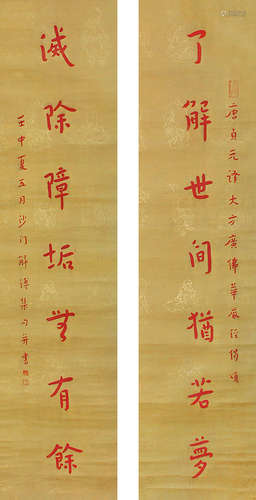 了解世间猶若夢
唐貞元譯大方廣佛華嚴經偈頌
滅除障垢無有餘
壬申夏五月沙门
集句并書